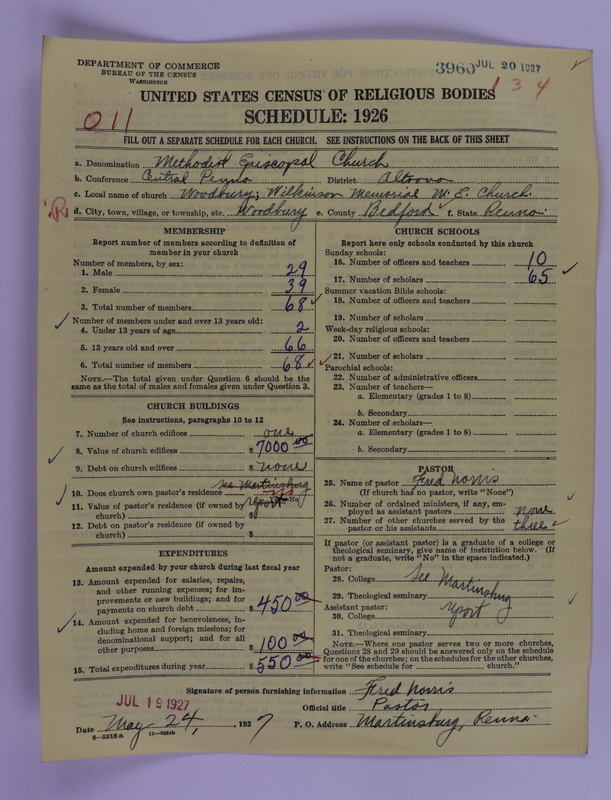 DEPARTMENT OF COMMERCE
BUREAU OF THE CENSUS
WASHINGTON
3960 JUL 20 1927
1 3 4
UNITED STATES CENSUS OF RELIGIOUS BODIES
SCHEDULE: 1926
011
FILL OUT A SEPARATE SCHEDULE FOR EACH CHURCH. SEE INSTRUCTIONS ON THE BACK OF THIS SHEET
a. Denomination Methodist Episcopal Church
b. Conference Central Penna District Altoona
c. Local name of church Woodbury; Wilkinson Memorial M. E. Church.
R d. City, town, village, or township, etc. Woodbury e. County Bedford f. State Penna.
MEMBERSHIP
Report number of members according to definition of
member in your church
Number of members, by sex:
1. Male 29
2. Female 39
3. Total number of members 68
Number of members under and over 13 years old:
4. Under 13 years of age 2
5. 13 years old and over 66
6. Total number of members 68
NOTE.—The total given under Question 6 should be the
same as the total of males and females given under Question 3.
CHURCH BUILDINGS
See instructions, paragraphs 10 to 12
7. Number of church edifices one
8. Value of church edifices $7000.00
9. Debt on church edifices $ none
10. Does church own pastor's residence see Martinsburg
11. Value of pastor's residence (if owned by report
church) $
12. Debt on pastor's residence (if owned by
church) $
EXPENDITURES
Amount expended by your church during last fiscal year
13. Amount expended for salaries, repairs,
and other running expenses; for im-
provements or new buildings; and for
payments on church debt $450.00
14. Amount expended for benevolences, in-
cluding home and foreign missions; for
denominational support; and for all
other purposes $100.00
15. Total expenditures during year $550.00
CHURCH SCHOOLS
Report here only schools conducted by this church
Sunday schools:
16. Number of officers and teachers 10
17. Number of scholars 65
Summer vacation Bible schools:
18. Number of officers and teachers
19. Number of scholars
Week-day religious schools:
20. Number of officers and teachers
21. Number of scholars
Parochial schools:
22. Number of administrative officers
23. Number of teachers—
a. Elementary (grades 1 to 8)
b. Secondary
24. Number of scholars—
a. Elementary (grades 1 to 8)
b. Secondary
PASTOR
25. Name of pastor Fred Norris
(If church has no pastor, write "None")
26. Number of ordained ministers, if any, em-
ployed as assistant pastors none
27. Number of other churches served by the
pastor or his assistants three
If pastor (or assistant pastor) is a graduate of a college or
theological seminary, give name of institution below. (If
not a graduate, write "No" in the space indicated.)
Pastor:
28. College See Martinsburg
29. Theological seminary
Assistant pastor: report
30. College
31. Theological seminary
NOTE.—Where one pastor serves two or more churches,
Questions 28 and 29 should be answered only on the schedule
for one of the churches; on the schedules for the other churches,
write "See schedule for church."
Signature of person furnishing information Fred Norris
JUL 19 1927
Official title Pastor
Date May 24, , 1927 P. O. Address Martinsburg, Penna.
8—5518a 11—9